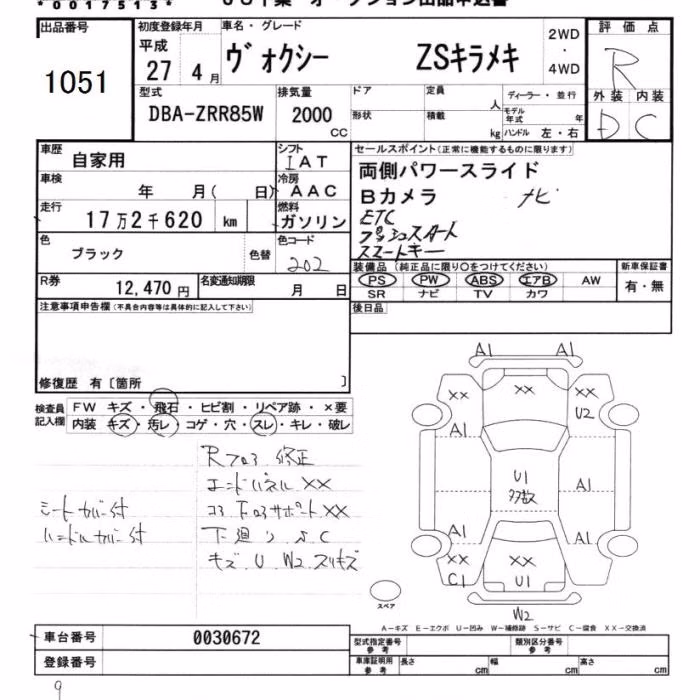 *00175135*
出品番号 初度登録年月 車名・グレード 2WD 評価点
1051 平成 27 4月 ヴォクシー ZSキラメキ ・ 4WD R
型式 排気量 ドア 定員 人 ディーラー・並行 外装 内装
DBA-ZRR85W 2000 CC 形状 積載 kg モデル年式 年 ハンドル 左・右 D C
車歴 自家用 シフト IAT セールスポイント(正常に機能するものに限ります)
車検 年 月( 日) 冷房 AAC 両側パワースライド
走行 17万2千620 km 燃料 ガソリン Bカメラ ナビ
ETC
プッシュスタート
スマートキー
色 ブラック 色替 色コード 202
装備品(純正品に限り○をつけてください) 新車保証書
R券 12,470円 名変通知期限 月 日 PS PW ABS エアB AW 有・無
SR ナビ TV カワ
注意事項申告欄(不具合内容等は具体的に記入して下さい) 後日品
修復歴 有〔箇所 〕
検査員記入欄 FW キズ・飛石・ヒビ割・リペア跡・×要
内装 キズ・汚レ・コゲ・穴・スレ・キレ・破レ
Rフロア修正
エンドパネルXX
シートカバー付 コアサポートXX
ハンドルカバー付 下廻り S.C
キズ.U.W2.スリキズ
A1 A1
XX XX XX
U2
A1
U1
多数
A1
A1 A1
XX XX
C1 U1
スペア W2
A-キズ E-エクボ U-凹み W-補修跡 S-サビ C-腐食 XX-交換済
車台番号 0030672 型式指定番号 参考 類別区分番号 参考
登録番号 車庫証明用 参考 長さ cm 幅 cm 高さ cm
9